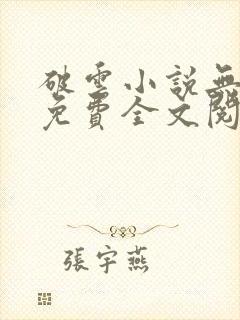 破雲小說無
免費全文閱
張宇燕